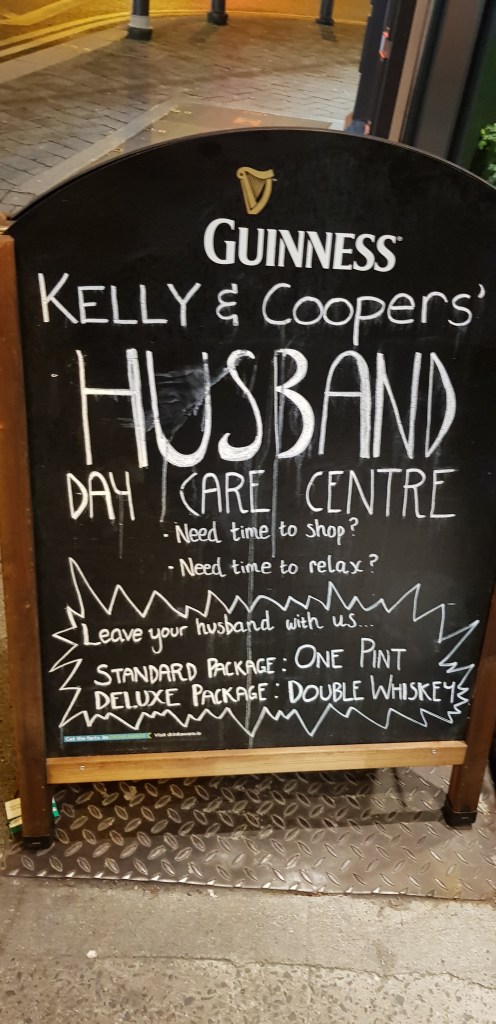 GUINNESS
KELLY & COOPERS'
HUSBAND
DAY CARE CENTRE
· Need time to shop?
· Need time to relax?
Leave your husband with us...
STANDARD PACKAGE: ONE PINT
DELUXE PACKAGE: DOUBLE WHISKEY
Get the facts. Be Visit drinkaware.ie